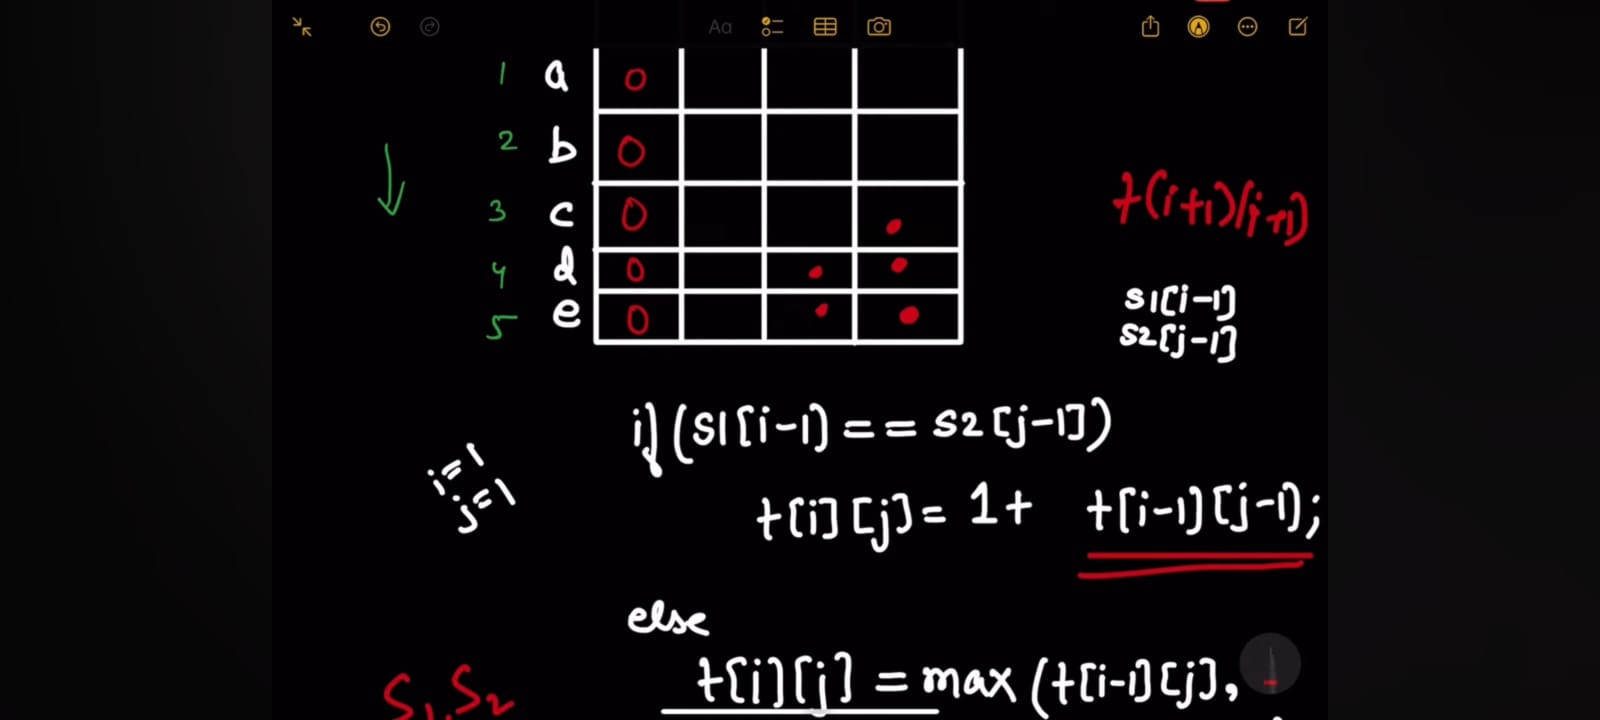 Aa
1 a 0
2 b 0
3 c 0
4 d 0
5 e 0
t(i+1)(j+1)
s1[i-1]
s2[j-1]
if (s1[i-1) == s2[j-1])
i=1
j=1
t[i][j]= 1+ t[i-1][j-1);
else
t[i][j] = max (t[i-1][j],
S1, S2